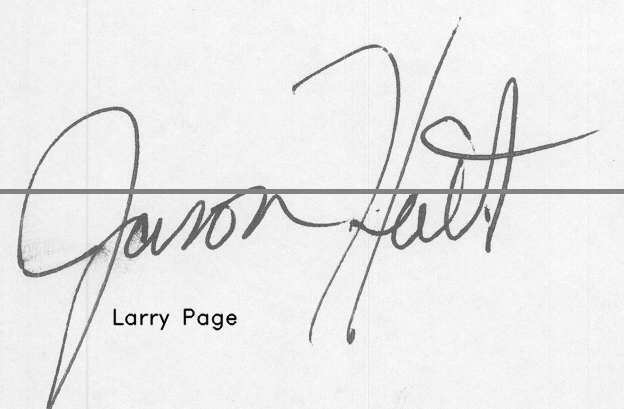 Jason Halt
Larry Page